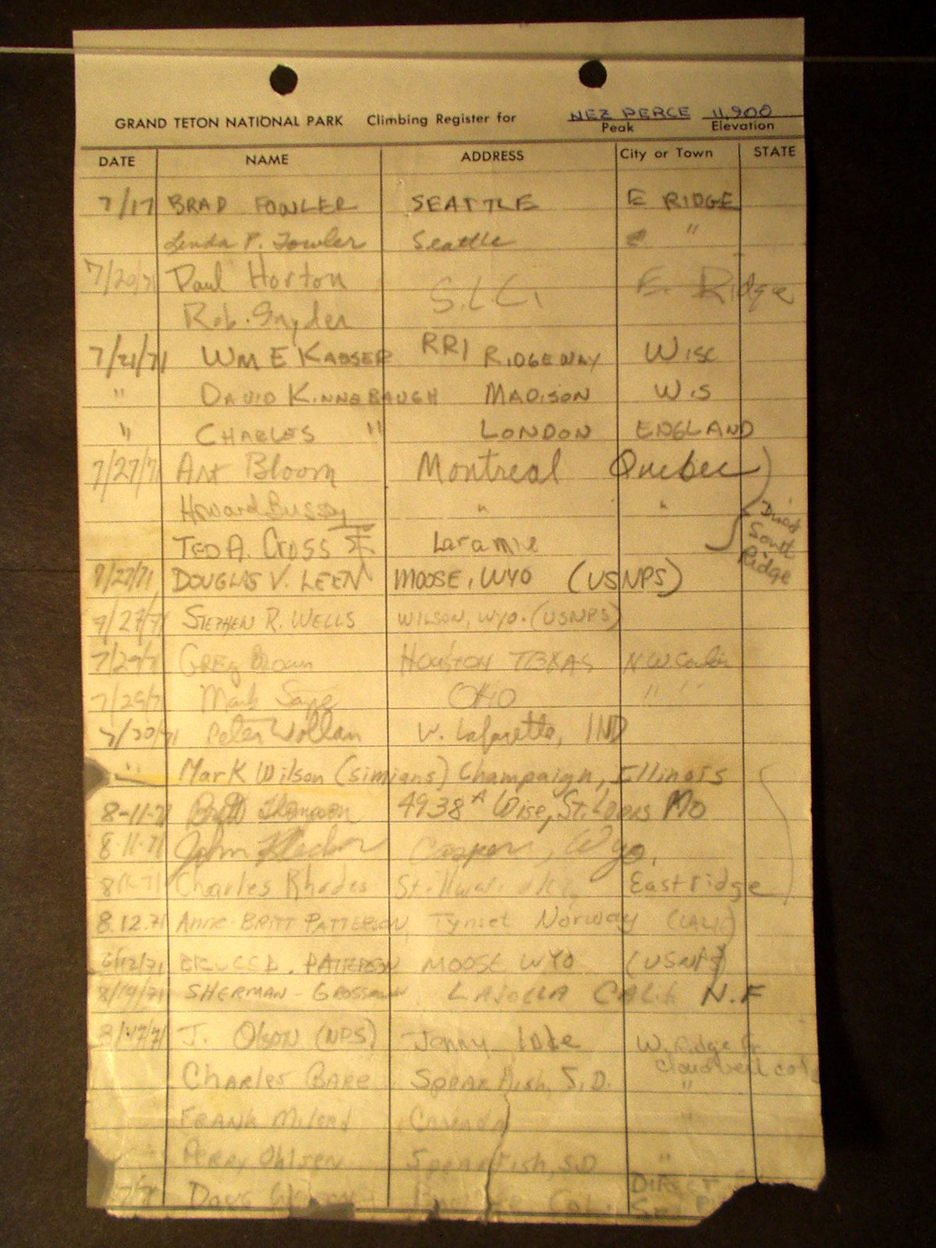 GRAND TETON NATIONAL PARK Climbing Register for NEZ PERCE 11,900
Peak Elevation
DATE NAME ADDRESS City or Town STATE
7/17 BRAD FOWLER SEATTLE E RIDGE
Linda P. Fowler Seattle " 
7/20/71 Paul Horton S.L.C. E. Ridge
Rob. Snyder
7/21/71 WM E KAOSER RR1 RIDGEWAY WISC
" DAVID KINNEBAUGH MADISON WIS
" CHARLES " LONDON ENGLAND
7/27/71 Art Bloom Montreal Quebec
Howard Bussey " "
TED A. CROSS Laramie
Direct South Ridge
7/27/71 DOUGLAS V. LEEN MOOSE, WYO (USNPS)
7/27/71 STEPHEN R. WELLS WILSON, WYO. (USNPS)
7/29/71 GREG Brown HOUSTON TEXAS N W Couloir
7/29/71 Mark OHIO " "
7/30/71 Peter Wollan W. Lafayette, IND
" Mark Wilson (simians) Champaign, Illinois
8-11-71 Thompson 4938A Wise, St. Louis MO
8-11-71 John Casper, Wyo.
Charles Rhodes East ridge
8.12.71 Anne-BRITT PATTERSON Tynset Norway (CALIF)
8/12/71 BRUCE D. PATTERSON MOOSE WYO (USNPS)
8/14/71 SHERMAN GROSSMAN LAJOLLA CALIF N.F
J. OLSON (NPS) Jenny lake W. Ridge Fr
cloudveil col
CHARLES BARE SPEARFISH, S.D. "
FRANK Canada "
PERRY Ohlsen Spearfish, SD "
Doug DIRECT